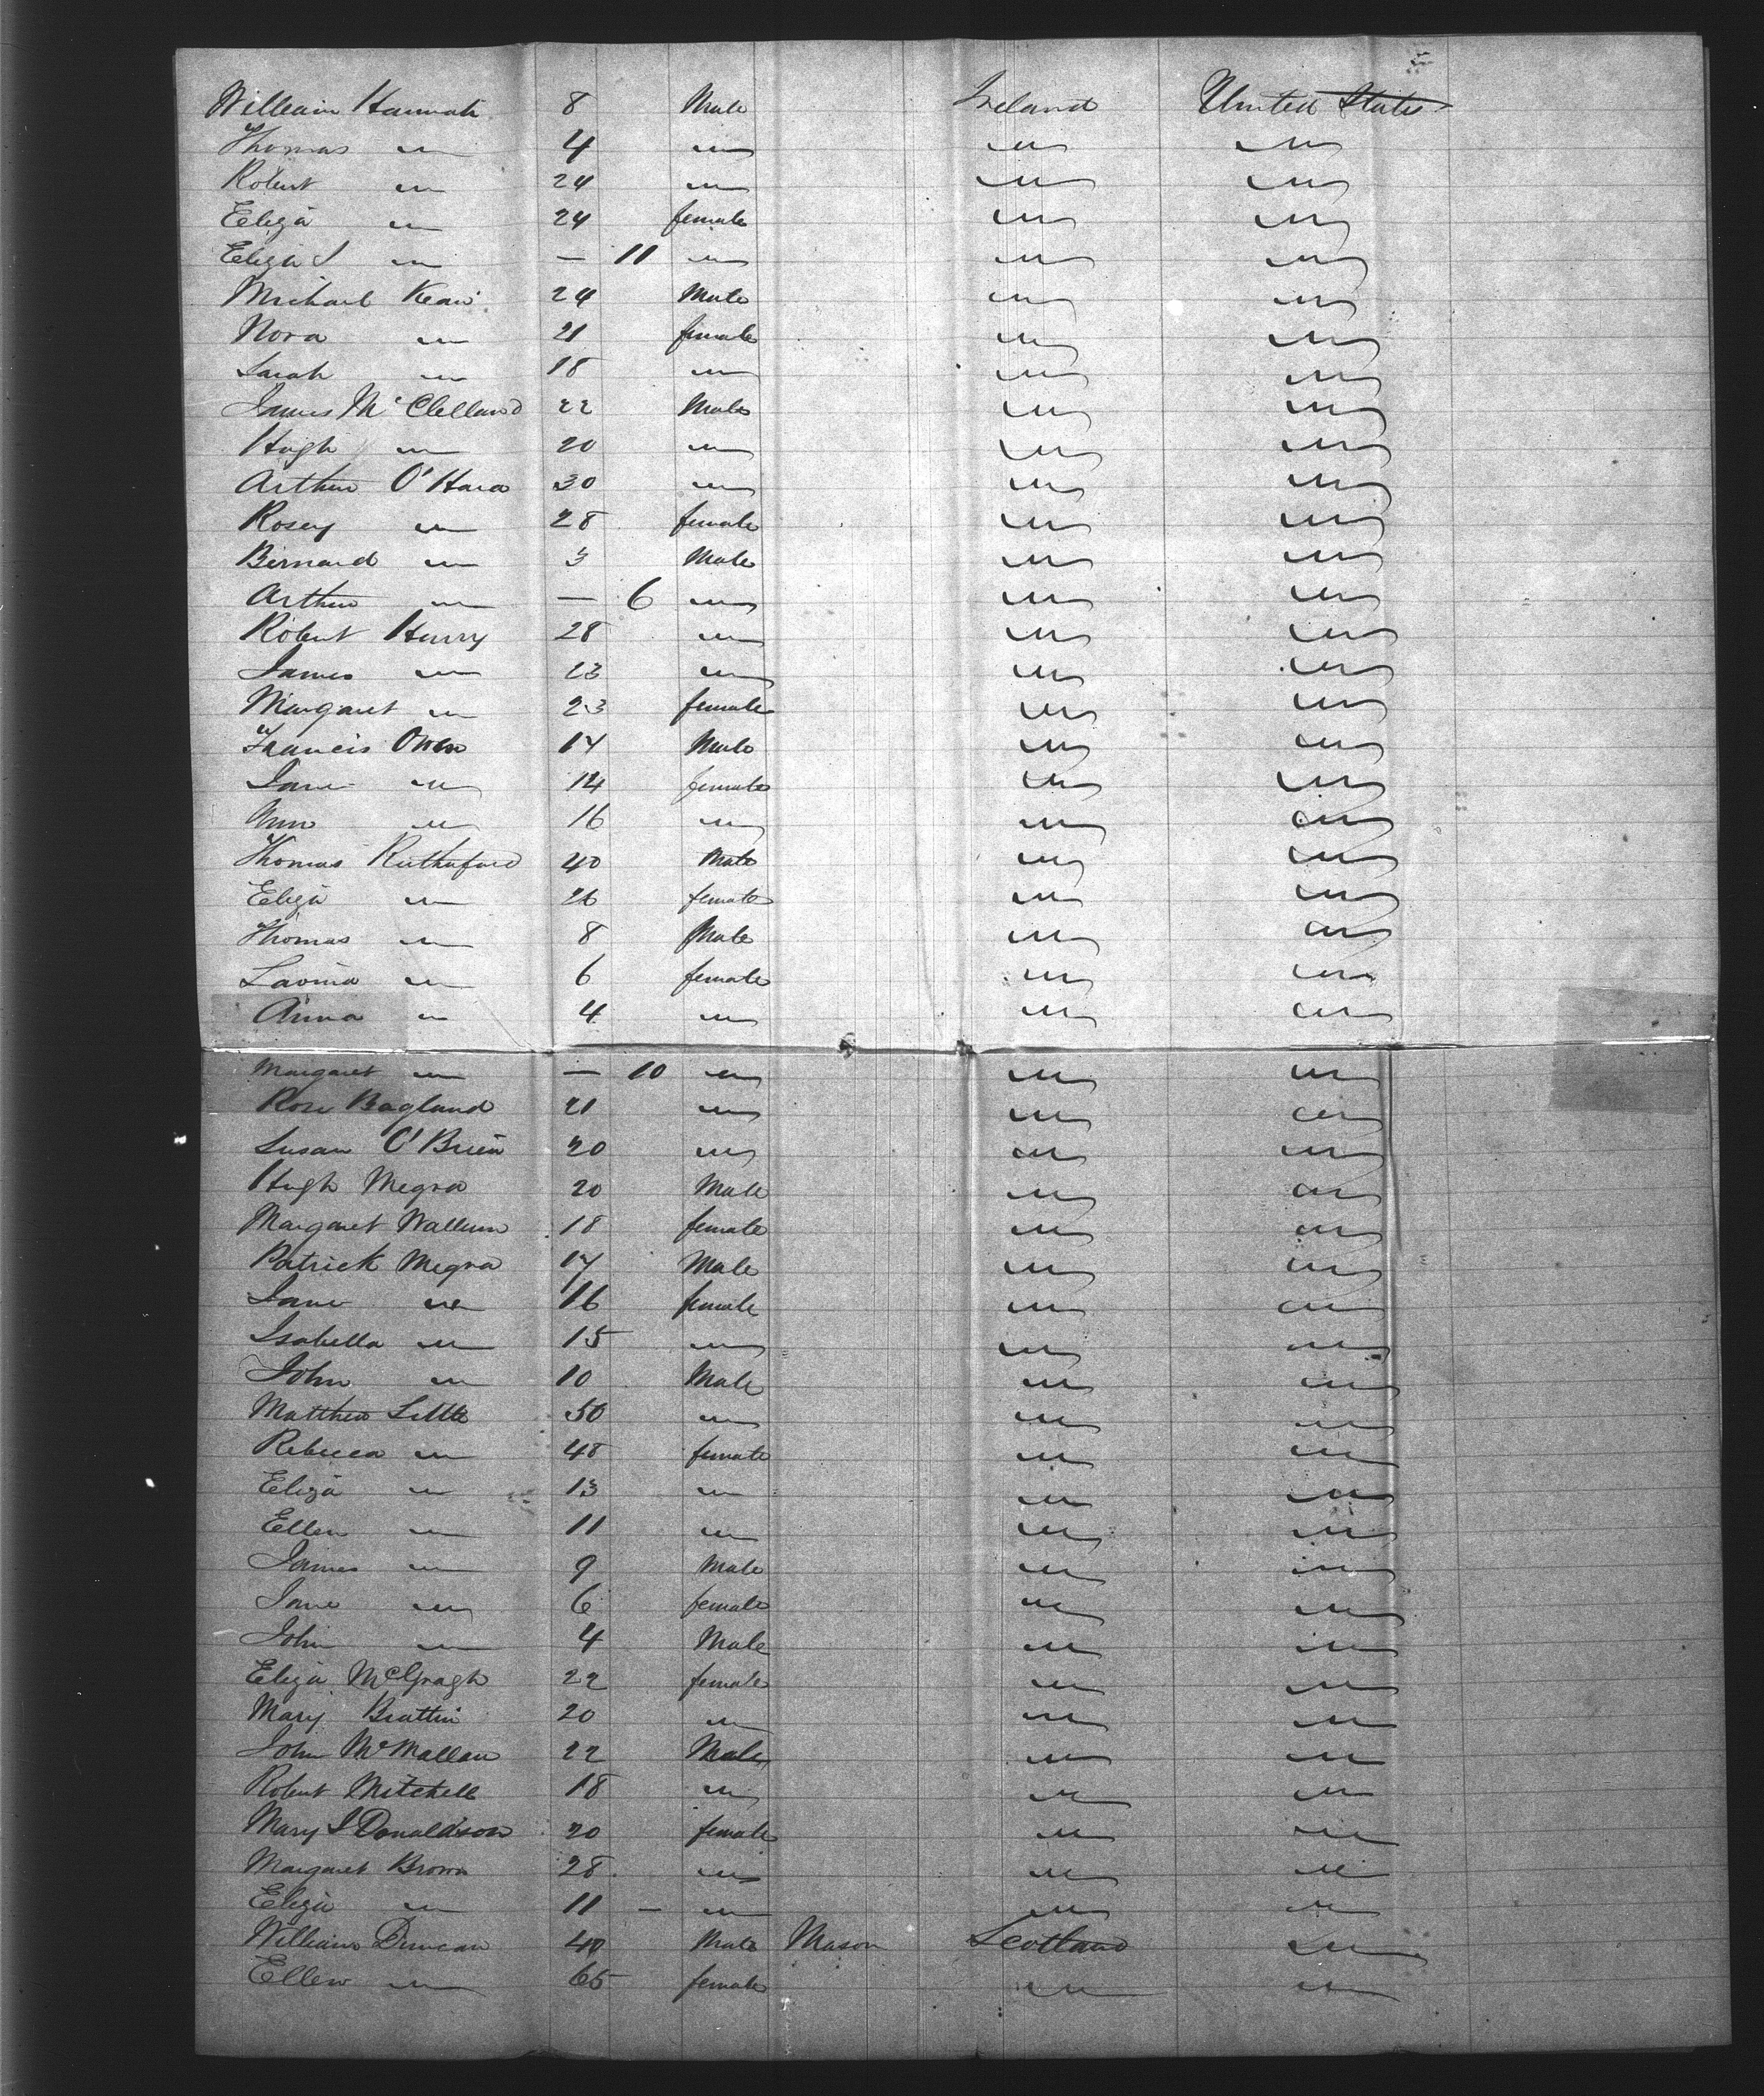 William Hannah 8 Male Ireland United States
Thomas " 4 " " "
Robert " 24 " " "
Eliza " 24 female " "
Eliza J " — 11 " " "
Michael Kean 24 Male " "
Nora " 21 female " "
Sarah " 18 " " "
James McClelland 22 Male " "
Hugh " 20 " " "
Arthur O'Hara 30 " " "
Rosey " 28 female " "
Bernard " 3 Male " "
Arthur " — 6 " " "
Robert Henry 28 " " "
James " 23 " " "
Margaret " 23 female " "
Francis Owen 14 Male " "
Jane " 14 female " "
Ann " 16 " " "
Thomas Rutherford 40 Male " "
Eliza " 26 female " "
Thomas " 8 Male " "
Lavina " 6 female " "
Anna " 4 " " "
Margaret " — 10 " " "
Rose Bagland 21 " " "
Susan O'Brien 20 " " "
Hugh Megra 20 Male " "
Margaret 18 female " "
Patrick Megra 17 Male " "
Jane " 16 female " "
Isabella " 15 " " "
John " 10 Male " "
Matthew Little 50 " " "
Rebecca " 48 female " "
Eliza " 13 " " "
Ellen " 11 " " "
James " 9 Male " "
Jane " 6 female " "
John " 4 Male " "
Eliza McGragh 22 female " "
Mary Brattin 20 " " "
John McMallan 22 Male " "
Robert Mitchell 18 " " "
Mary J Donaldson 20 female " "
Margaret Brown 28 " " "
Eliza " 11 — " " "
William Duncan 40 Male Mason Scotland "
Ellen " 65 female " "